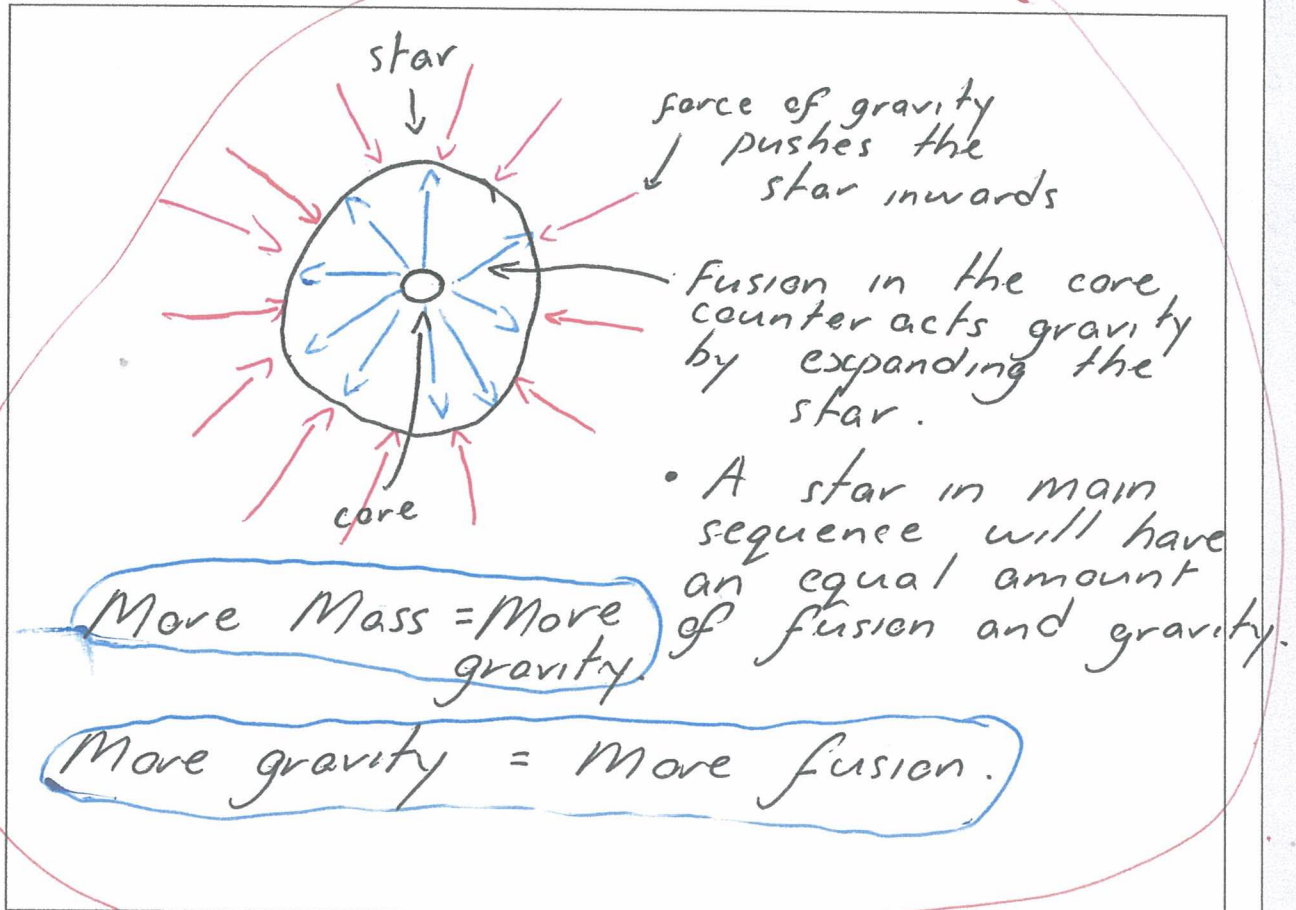 star
force of gravity
pushes the
star inwards
Fusion in the core
counter acts gravity
by expanding the
star.
core
• A star in main
sequence will have
an equal amount
of fusion and gravity.
More Mass = More
gravity.
More gravity = More fusion.